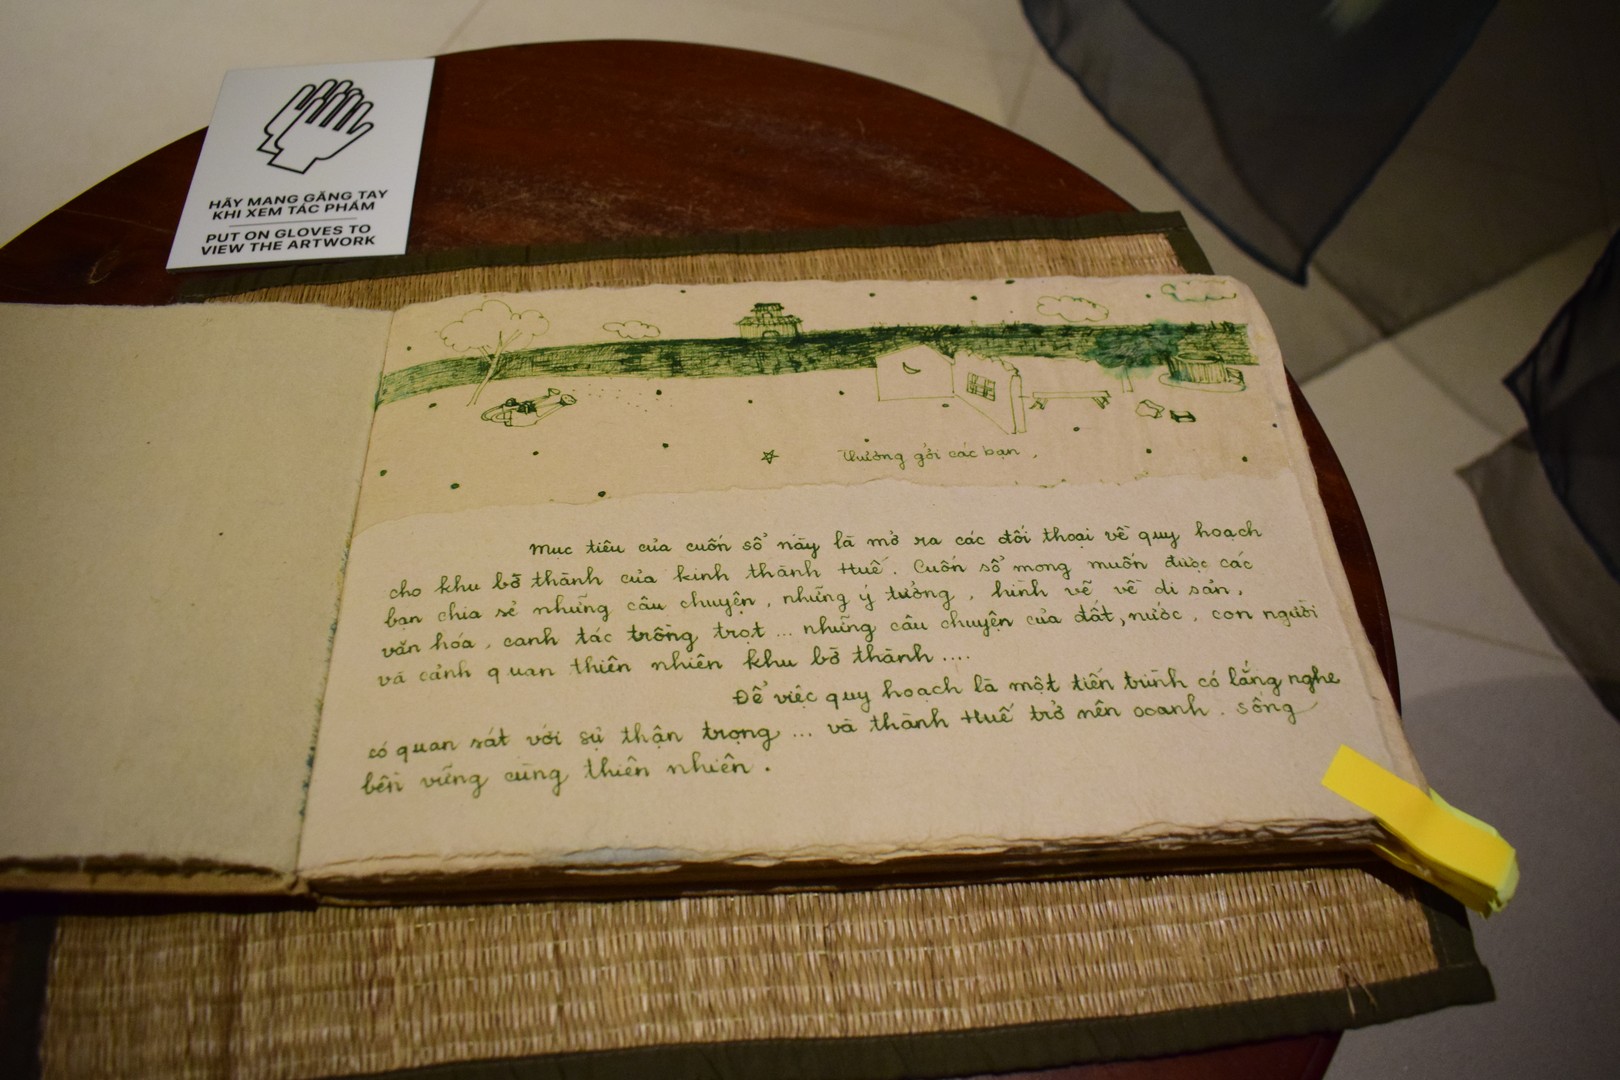 HÃY MANG GĂNG TAY
KHI XEM TÁC PHẨM
PUT ON GLOVES TO
VIEW THE ARTWORK
Thương gởi các bạn,
Mục tiêu của cuốn sổ này là mở ra các đối thoại về quy hoạch
cho khu bờ thành của kinh thành Huế. Cuốn sổ mong muốn được các
bạn chia sẻ những câu chuyện, những ý tưởng, hình vẽ về di sản,
văn hóa, canh tác trồng trọt ... những câu chuyện của đất, nước, con người
và cảnh quan thiên nhiên khu bờ thành ....
Để việc quy hoạch là một tiến trình có lắng nghe
có quan sát với sự thận trọng ... và thành Huế trở nên xanh. sống
bền vững cùng thiên nhiên.